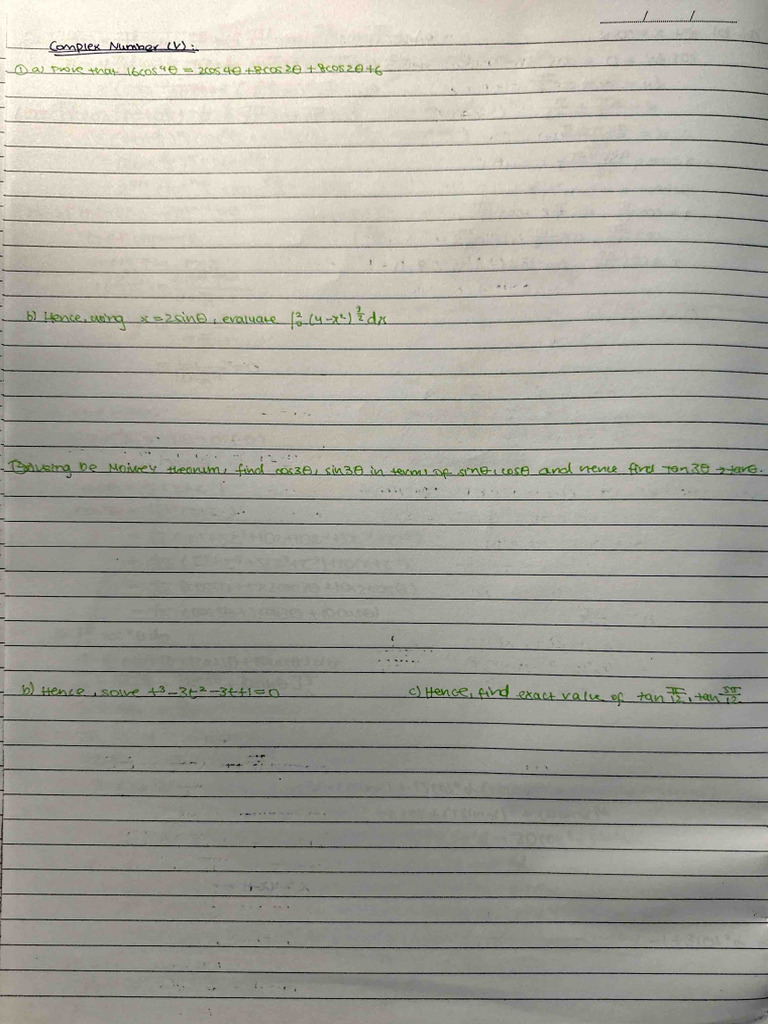 Complex Number (V):
① a) Prove that 16cos⁴θ = 2cos4θ + 8cos2θ + 8cos2θ + 6
b) Hence, using x = 2sinθ, evaluate ∫₀² (4-x²)^{3/2} dx
using De Moivre theorum, find cos3θ, sin3θ in terms of sinθ, cosθ and hence find tan3θ → tanθ.
b) Hence, solve t³ - 3t² - 3t + 1 = 0 c) Hence, find exact value of tan π/12, tan 5π/12